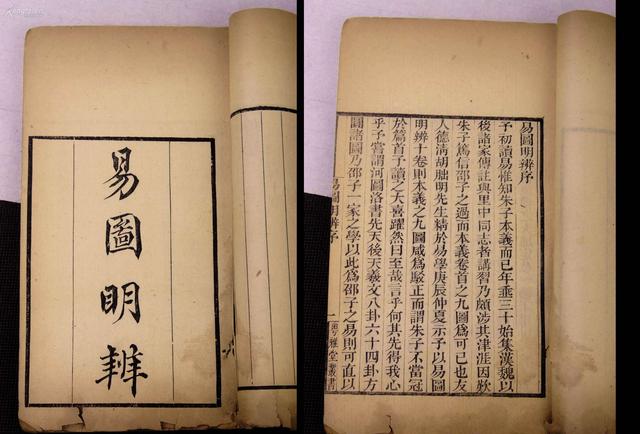 易圖明辨
易圖明辨序
予初讀易惟知朱子本義而已年垂三十始集漢魏以
後諸家傳註與里中同志者講習乃頗涉其津涯因歎
朱子篤信邵子之過而本義卷首之九圖為可已也友
人德清胡朏明先生精於易學庚辰仲夏示予以易圖
明辨十卷則本義之九圖咸為駁正而謂朱子不當冠
於篇首予讀之大喜躍然曰至哉言乎何其先得我心
乎予嘗謂河圖洛書先天後天羲文八卦六十四卦方
圓諸圖乃邵子一家之學以此為邵子之易則可直以
易圖明辨序
一
粵雅堂叢書